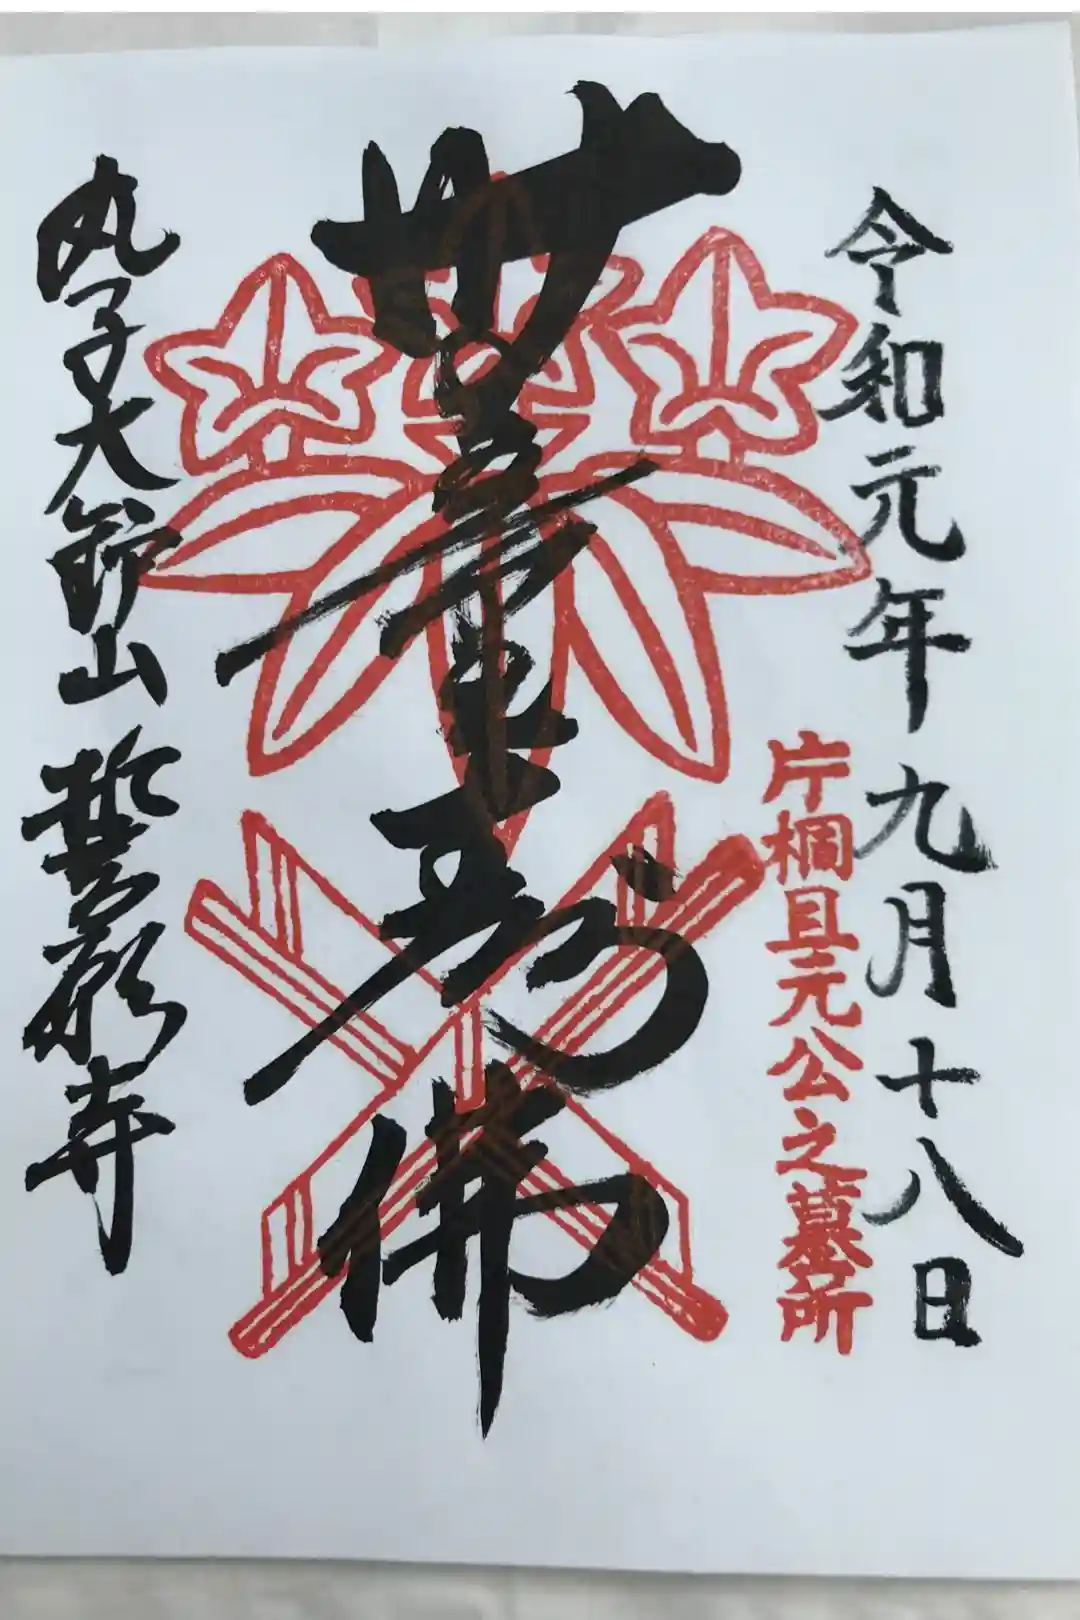 令和元年九月十八日
片桐且元公之墓所
無量壽佛
丸子大鈩山 誓願寺